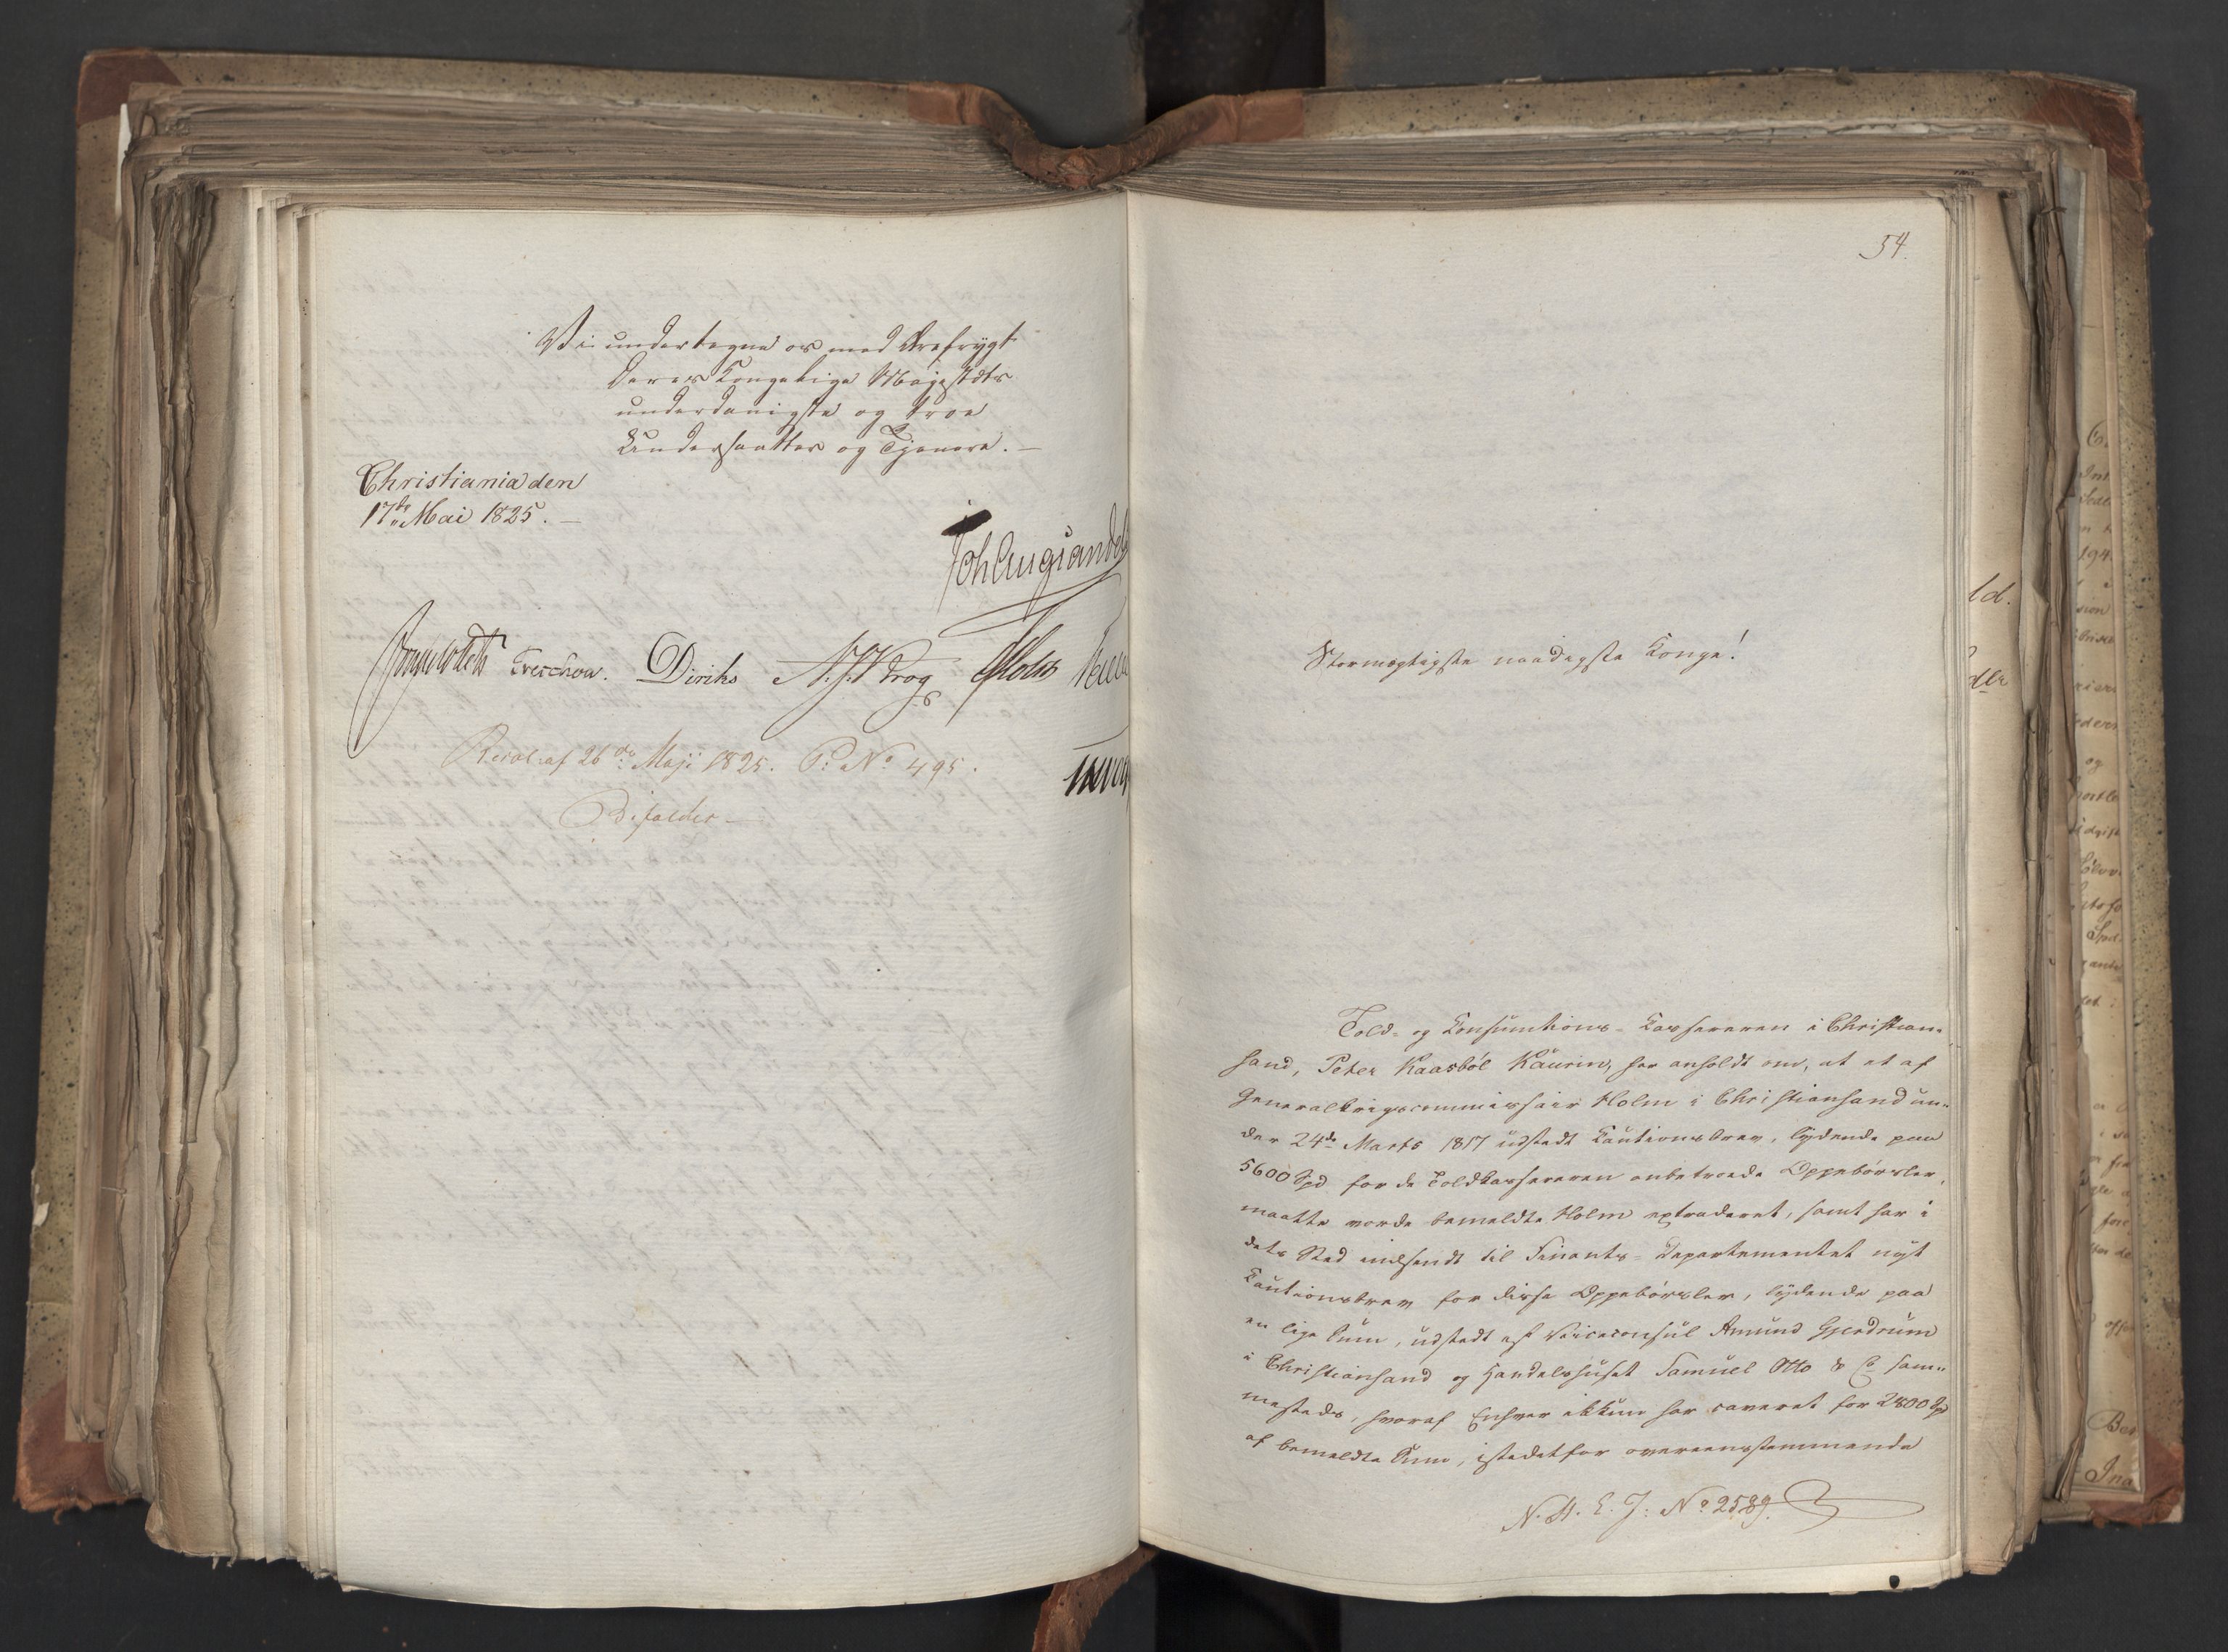 Vi undertegne os med Ærefrygt
Deres Kongelige Majestæts
underdanigste og troe
Undersaatter og Tjenere. —
Christiania den
17de Mai 1825. —
Joh Aug Sandels
Sommerhielm Treschow. Diriks N. J. Krog Holst
Resol: af 26de Maji 1825. P: No 495.
Bifaldes —
54.
Stormægtigste naadigste Konge!
Told- og Consumtions-Kassereren i Christian-
sand, Peter Kaasböl Kaurin, har anholdt om, at et af
Generalkrigscommissair Holm i Christiansand un-
der 24de Marts 1817 udstedt Cautionsbrev, lydende paa
5600 Spd for de Toldkassereren anbetroede Oppebörsler,
maatte vorde bemeldte Holm extraderet, samt har i
dets Sted indsendt til Finants-Departementet nyt
Cautionsbrev for disse Oppebörsler, lydende paa
en lige Sum, udstedt af Viceconsul Amund Gjerdrum
i Christiansand og Handelshuset Samuel Otto & C sam-
mesteds, hvoraf Enhver ikkun har caveret for 2800 Spd
af bemeldte Sum, istedetfor overeensstemmende
N. A. E. J: No 2589.